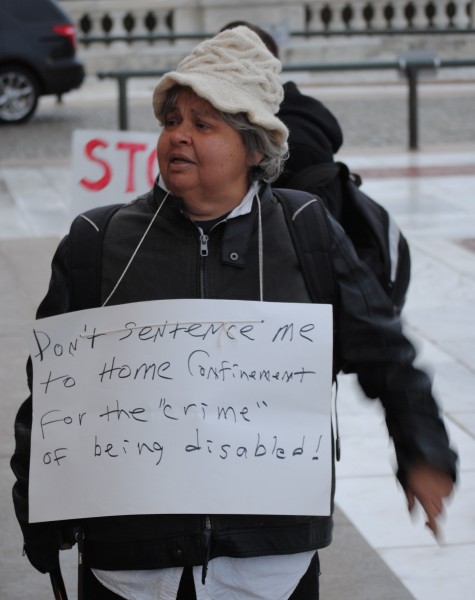 STO
Don't sentence me
to Home Confinement
for the "crime"
of being disabled!